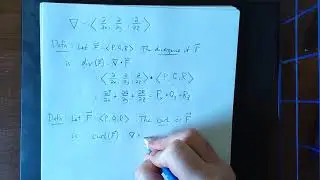 ∇ = ⟨∂/∂x, ∂/∂y, ∂/∂z⟩
Defn: Let F⃗ = ⟨P,Q,R⟩. The divergence of F⃗
is div(F⃗) = ∇ • F⃗
⟨∂/∂x, ∂/∂y, ∂/∂z⟩ • ⟨P,Q,R⟩
= ∂P/∂x + ∂Q/∂y + ∂R/∂z = Pₓ + Qᵧ + R_z
Defn: Let F⃗ = ⟨P,Q,R⟩. The curl of F⃗
is curl(F⃗) ∇ ×